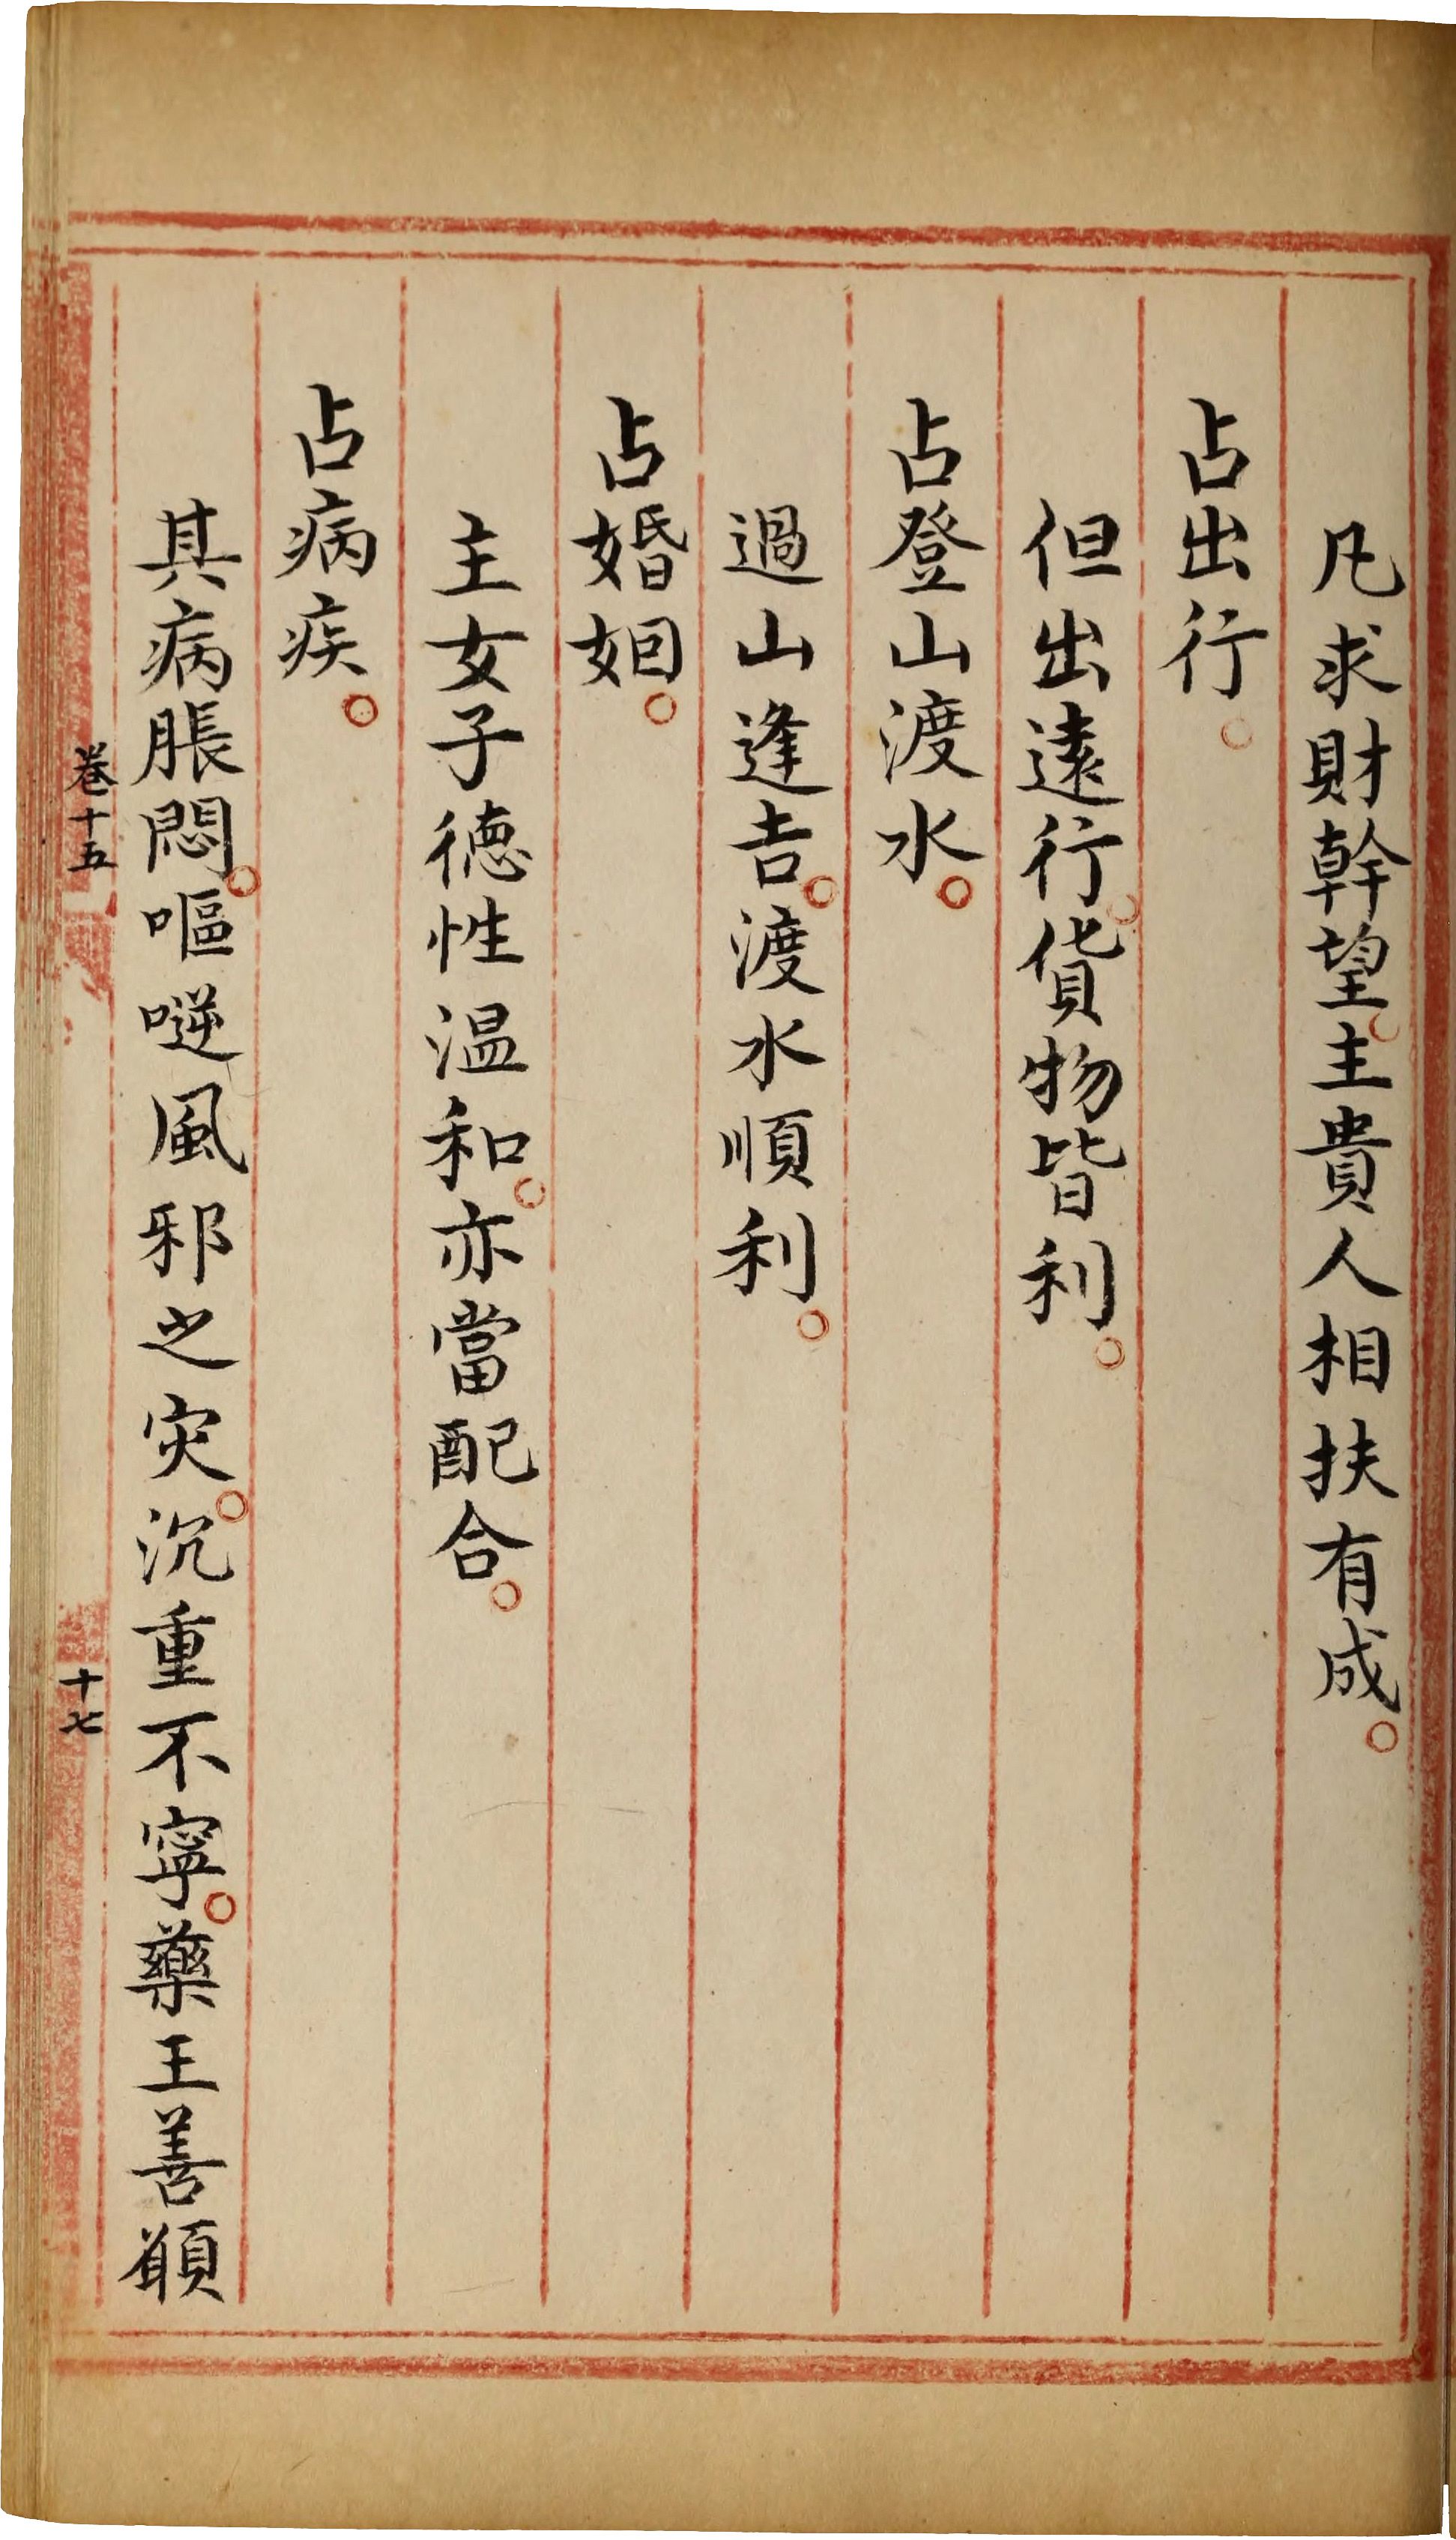 凡求財幹望。主貴人相扶有成。
占出行。
但出遠行。貨物皆利。
占登山渡水。
過山逢吉。渡水順利。
占婚姻。
主女子德性温和。亦當配合。
占病疾。
其病脹悶。嘔噬風邪之灾。沉重不寧。藥王善願
卷十五
十七